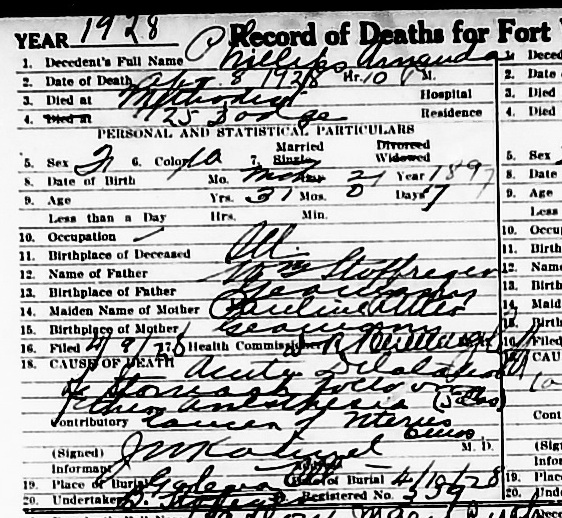 YEAR 1928 Record of Deaths for Fort
1. Decedent's Full Name Phillips Amanda
2. Date of Death Apr. 8 1928 Hr. 10 P M.
3. Died at Methodist Hospital
4. Died at 125 Dodge Residence
PERSONAL AND STATISTICAL PARTICULARS
Married Divorced
5. Sex F 6. Color W 7. Single Widowed
8. Date of Birth Mo. Mar Day 21 Year 1897
9. Age Yrs. 31 Mos. 0 Days
Less than a Day Hrs. Min.
10. Occupation
11. Birthplace of Deceased Ill.
12. Name of Father Wm Stoffregen
13. Birthplace of Father Germany
14. Maiden Name of Mother Pauline
15. Birthplace of Mother Germany
16. Filed 4/9/28 Health Commissioner
18. CAUSE OF DEATH Acute Dilatation
of Stomach following
Ether Anesthesia
Contributory Cancer of Uterus
(Signed) M. D.
Informant
19. Place of Burial Date of Burial 4/10/28
20. Undertaker Registered No. 339
1. Deced
2. Date
3. Died
4. Died
5. Sex
8. Date
9. Age
Less
10. Occu
11. Birth
12. Name
13. Birth
14. Maid
15. Birth
16. Filed
18. CAU
Cont
(Sign
Infor
19. Place
20. Und